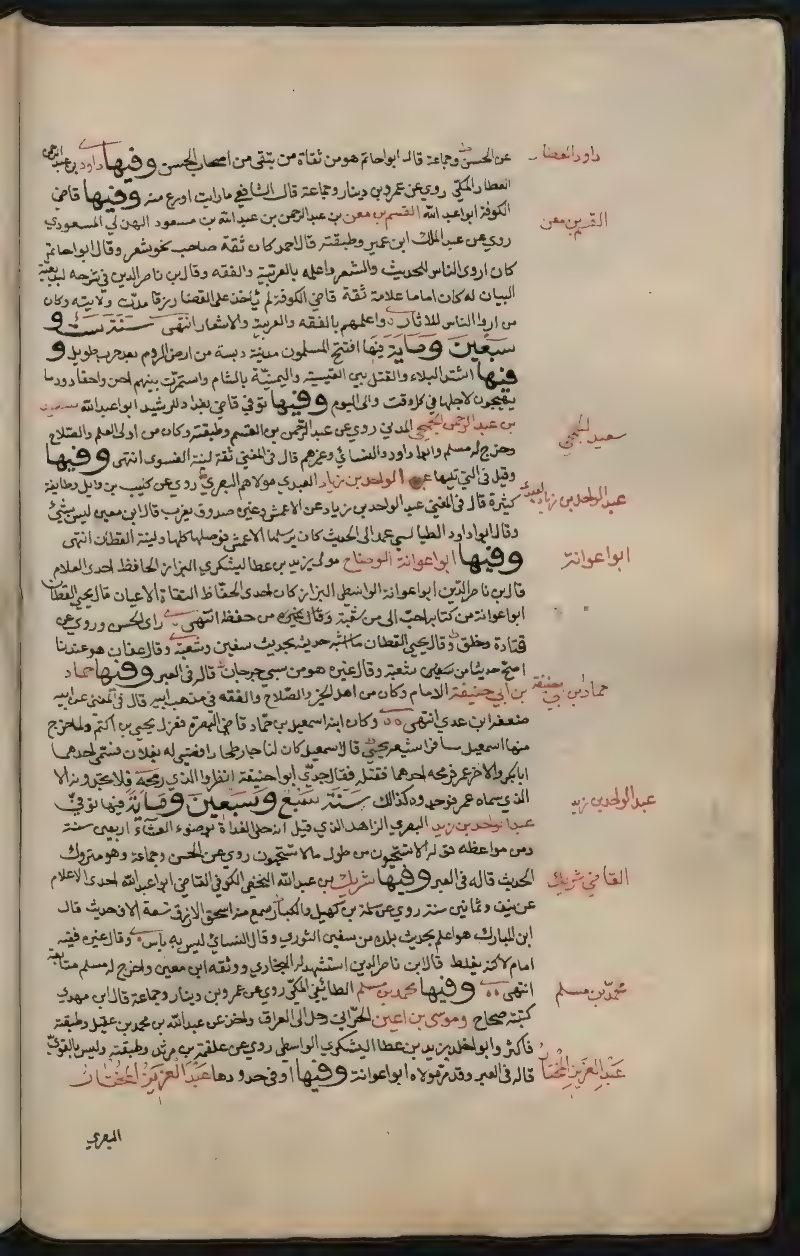 عن الحسن وجماعة قال ابوا حاتم هو من ثقاة من بتقى من اصحاب الحسن وفيها داود بن عبد الرحمن
داود العطار
العطار المكي روي عن عمرو بن دينار وجماعة قال الشافعي ما رايت اورع منه وفيها قاضي
الكوفة ابوا عبد الله القسم بن معن بن عبد الرحمن بن عبد الله بن مسعود الهذلي المسعودي
القسم بن معن
روي عن عبد الملك ابن عمير وطبقته قال احمد كان ثقة صاحب نحو شعر وقال ابوا حاتم
كان اروى الناس للحديث والشعر واعلمه بالعربية والفقه وقال بن ناصر الدين في شرحه لبديعية
البيان له كان اماما علامة ثقة قاضي الكوفة لم ياخذ على القضا رزقا مدت ولايته وكان
من اروا الناس للاثار واعلمهم بالفقه والعربية والاشعار انتهى سنة ست و
سبعين وماية فيها افتتح المسلمون مدينة دبسة من ارض الروم بعد حرب طويل و
فيها اشتد البلاء والقتل بين القيسية واليمنية بالشام واستمرت بينهم احن واحقاد ودما
يهيجون لاجلها في كل وقت والى اليوم وفيها توفي قاضي بغداد للرشيد ابوا عبد الله سعيد
بن عبد الرحمن الجمحي المدني روي عن عبد الرحمن بن القسم وطبقته وكان من اولى العلم والصلاح
سعيد الجمحي
وخرج له مسلم وابوا داوود والنسائي وغيرهم قال في المغني ثقة لينة الفسوى انتهى وفيها
وقيل في التي تليها عبد الواحد بن زياد العبدي مولاهم البصري روي عن كليب بن وايل وطايفة
عبد الواحد بن زياد العبدي
كثيرة قال في المغني عبد الواحد بن زياد عن الاعمش وغيره صدوق يغرب قال ابن معين ليس بشئ
وقال ابوا داود الطيالسي عمد الى احاديث كان يرسلها الاعمش فوصلها كلها ولينة القطان انتهى
وفيها ابوا عوانة الوضاح مولى يزيد بن عطا ليشكري البزاز الحافظ احدى العلام
ابوا عوانة
قال بن ناصر الدين ابوا عوانة الواسطي البزاز كان احدى الحفاظ الثقاة الاعيان قال يحيى القطان
ابوا عوانة من كتابه احب الى من شعبة وقال غيره من حفظ انتهى راى الحسن وروي عن
قتادة وخلق وقال يحيى القطان ما اشبه حديثه بحديث سفين وشعبة وقال عفان هو عندنا
اصح حديثا من شعبة وقال غيره هو من سبي جرجان قاله في العبر وفيها حماد
بن ابي حنيفة الامام وكان من اهل الخير والصلاح والفقه في مذهب ابيه قال في المغني عن ابيه
حماد بن ابي حنيفة
ضعفه ابن عدي انتهى وكان ابنه اسمعيل بن حماد قاضي البصرة فعزل يحيى بن اكثم ولما خرج
منها اسمعيل مسافرا شيعه يحيى قال اسمعيل كان لنا جار طحان رافضي له بغلان فسمى احدهما
ابا بكر والاخر عمر فرمحه احدهما فقتله فقال جدي ابوا حنيفة انظروا الذي رمحه فلا تجدونه الا
الذي سماه عمر فوجدوه كذلك سنة سبع وسبعين وماية فيها توفي
عبد الواحد بن زيد البصري الزاهد الذي قيل انه صلى الغداة بوضوء العشاء اربعين سنة
عبد الواحد بن زيد
ومن مواعظه قوله الا تستحيون من طول مالا تستحيون روي عن الحسن وجماعة وهو متروك
الحديث قاله في العبر وفيها شريك بن عبد الله النخعي الكوفي القاضي ابوا عبد الله احدى الاعلام
القاضي شريك
عن نيف وثمانين سنة روي عن سلمة بن كهيل والكبار سمع منه اسحق الازرق تسعة الاف حديث قال
ابن المبارك هو اعلم بحديث بلده من سفين الثوري وقال النسائي ليس به باس وقال غيره فقيه
امام لاكنه يغلط قال ابن ناصر الدين استشهد له البخاري ووثقه ابن معين واخرج له مسلم متابعة
انتهى وفيها محمد بن مسلم الطائفي المكي روي عن عمرو بن دينار وجماعة قال ابن مهدي
محمد بن مسلم
كتبه صحاح وموسى بن اعين الحراني رحل الى العراق واخذ عن عبد الله بن محمد بن عقيل وطبقته
فاكثر وابوا خالد يزيد بن عطا اليشكري الواسطي روي عن علقمة بن مرثد وطبقته وليس بالقوي
قاله في العبر وقد مر مولاه ابوا عوانة وفيها او في حدودها عبد العزيز المختار
عبد العزيز المختار
البصري